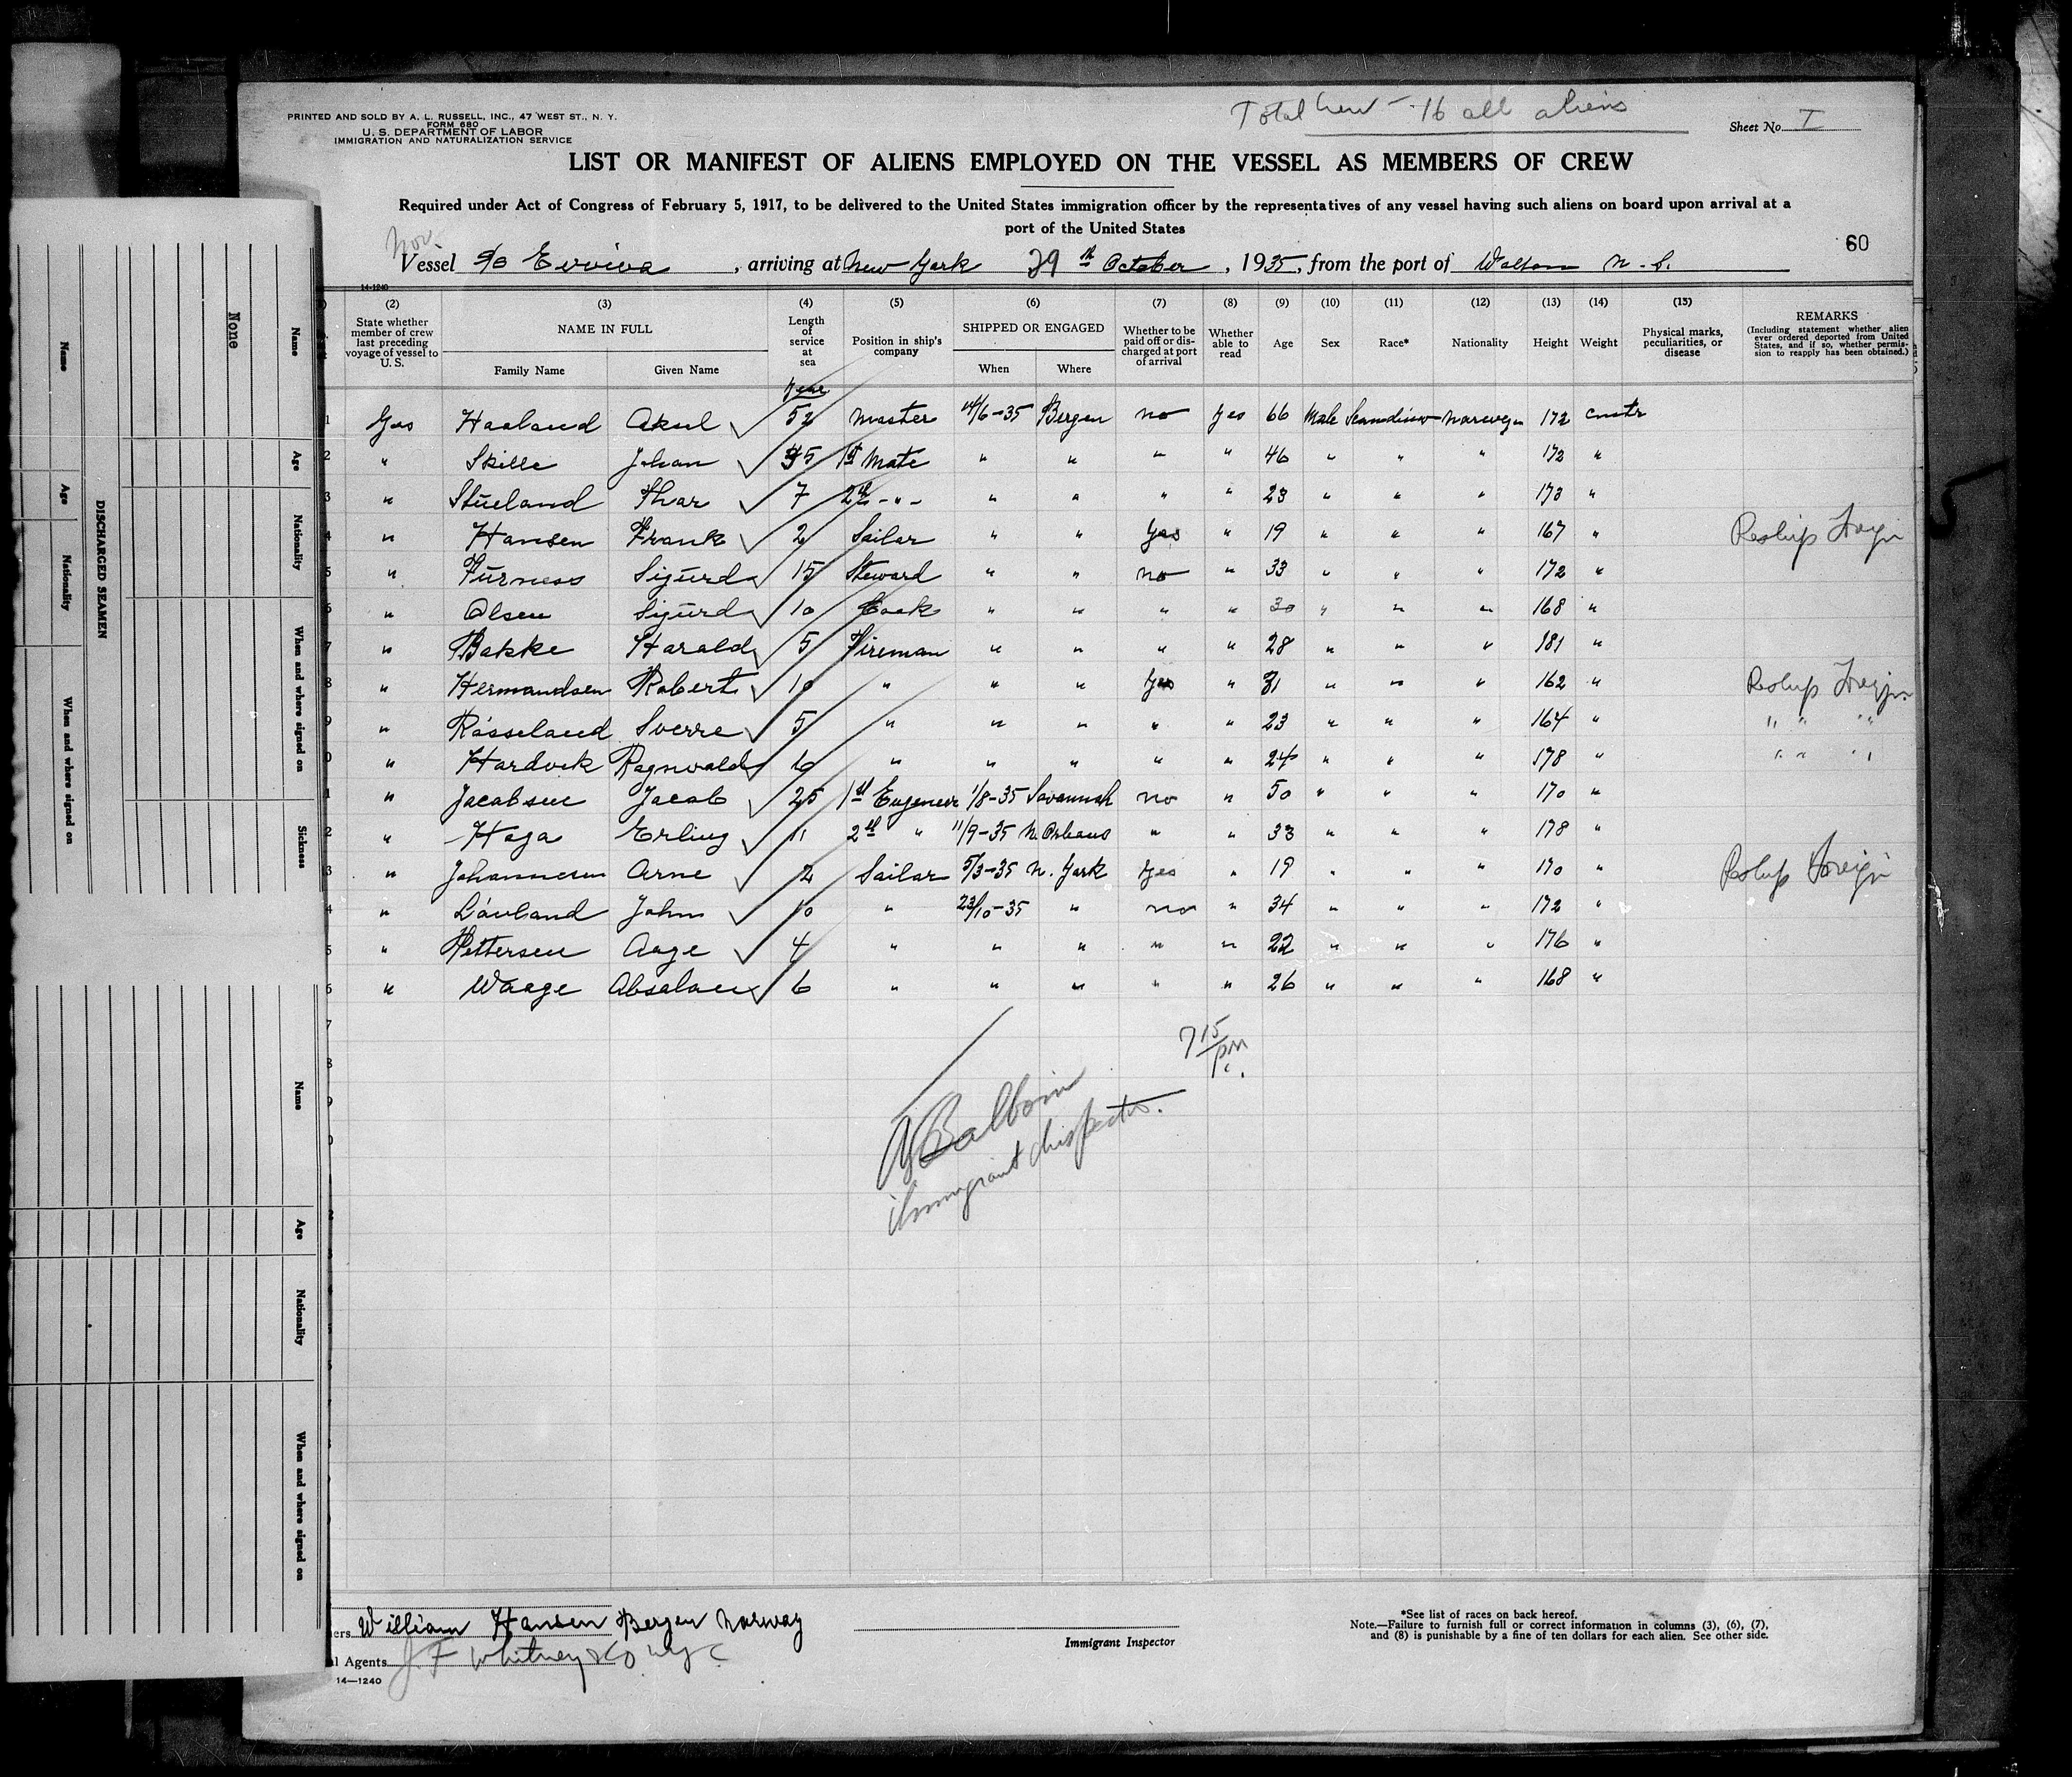 PRINTED AND SOLD BY A. L. RUSSELL, INC., 47 WEST ST., N. Y.
FORM 680
U. S. DEPARTMENT OF LABOR
IMMIGRATION AND NATURALIZATION SERVICE
Total Crew - 16 all aliens
Sheet No. I
LIST OR MANIFEST OF ALIENS EMPLOYED ON THE VESSEL AS MEMBERS OF CREW
Required under Act of Congress of February 5, 1917, to be delivered to the United States immigration officer by the representatives of any vessel having such aliens on board upon arrival at a
port of the United States
60
Nor.
Vessel S/S Evviva, arriving at New York 29th October, 1935, from the port of Walton N. S.
14-1240
(2) (3) (4) (5) (6) (7) (8) (9) (10) (11) (12) (13) (14) (15) REMARKS
State whether member of crew last preceding voyage of vessel to U. S. NAME IN FULL Family Name Given Name Length of service at sea Position in ship's company SHIPPED OR ENGAGED When Where Whether to be paid off or discharged at port of arrival Whether able to read Age Sex Race* Nationality Height Weight Physical marks, peculiarities, or disease (Including statement whether alien ever ordered deported from United States, and if so, whether permission to reapply has been obtained.)
Year
1 Yes Haaland Aksel 52 Master 14/6-35 Bergen no Yes 66 Male Scandinav Norwegn 172 cmtr
2 " Skille Johan 35 1st Mate " " " " 46 " " " 172 "
3 " Stueland Thor 7 2d -"- " " " " 23 " " " 173 "
4 " Hansen Frank 2 Sailor " " Yes " 19 " " " 167 " Reships Foreign
5 " Furness Sigurd 15 Steward " " no " 33 " " " 172 "
6 " Olsen Sigurd 10 Cook " " " " 30 " " " 168 "
7 " Bakke Harald 5 Fireman " " " " 28 " " " 181 "
8 " Hermandsen Robert 10 " " " Yes " 31 " " " 162 " Reships Foreign
9 " Rosseland Sverre 5 " " " " " 23 " " " 164 " " " " "
0 " Hardvik Ragnvald 6 " " " " " 24 " " " 178 " " " " "
1 " Jacobsen Jacob 25 1st Eugeneer 1/8-35 Savannah no " 50 " " " 170 "
2 " Haga Erling 11 2d " 11/9-35 N. Orleans " " 33 " " " 178 "
3 " Johannesen Arne 2 Sailor 5/3-35 N. York Yes " 19 " " " 170 " Reships Foreign
4 " Lauland John 10 " 23/10-35 " no " 34 " " " 172 "
5 " Pettersen Aage 4 " " " " " 22 " " " 176 "
6 " Waage Absalon 6 " " " " " 26 " " " 168 "
7
8
9
0
7 15/pm.
Balboin
Immigrant Inspector.
ers William Hansen Bergen Norway
l Agents J. F. Whitney & Co NYC
14—1240
Immigrant Inspector
*See list of races on back hereof.
Note.—Failure to furnish full or correct information in columns (3), (6), (7),
and (8) is punishable by a fine of ten dollars for each alien. See other side.
DISCHARGED SEAMEN
Name Age Nationality When and where signed on
None
Name Age Nationality When and where signed on Sickness
Name Age Nationality When and where signed on